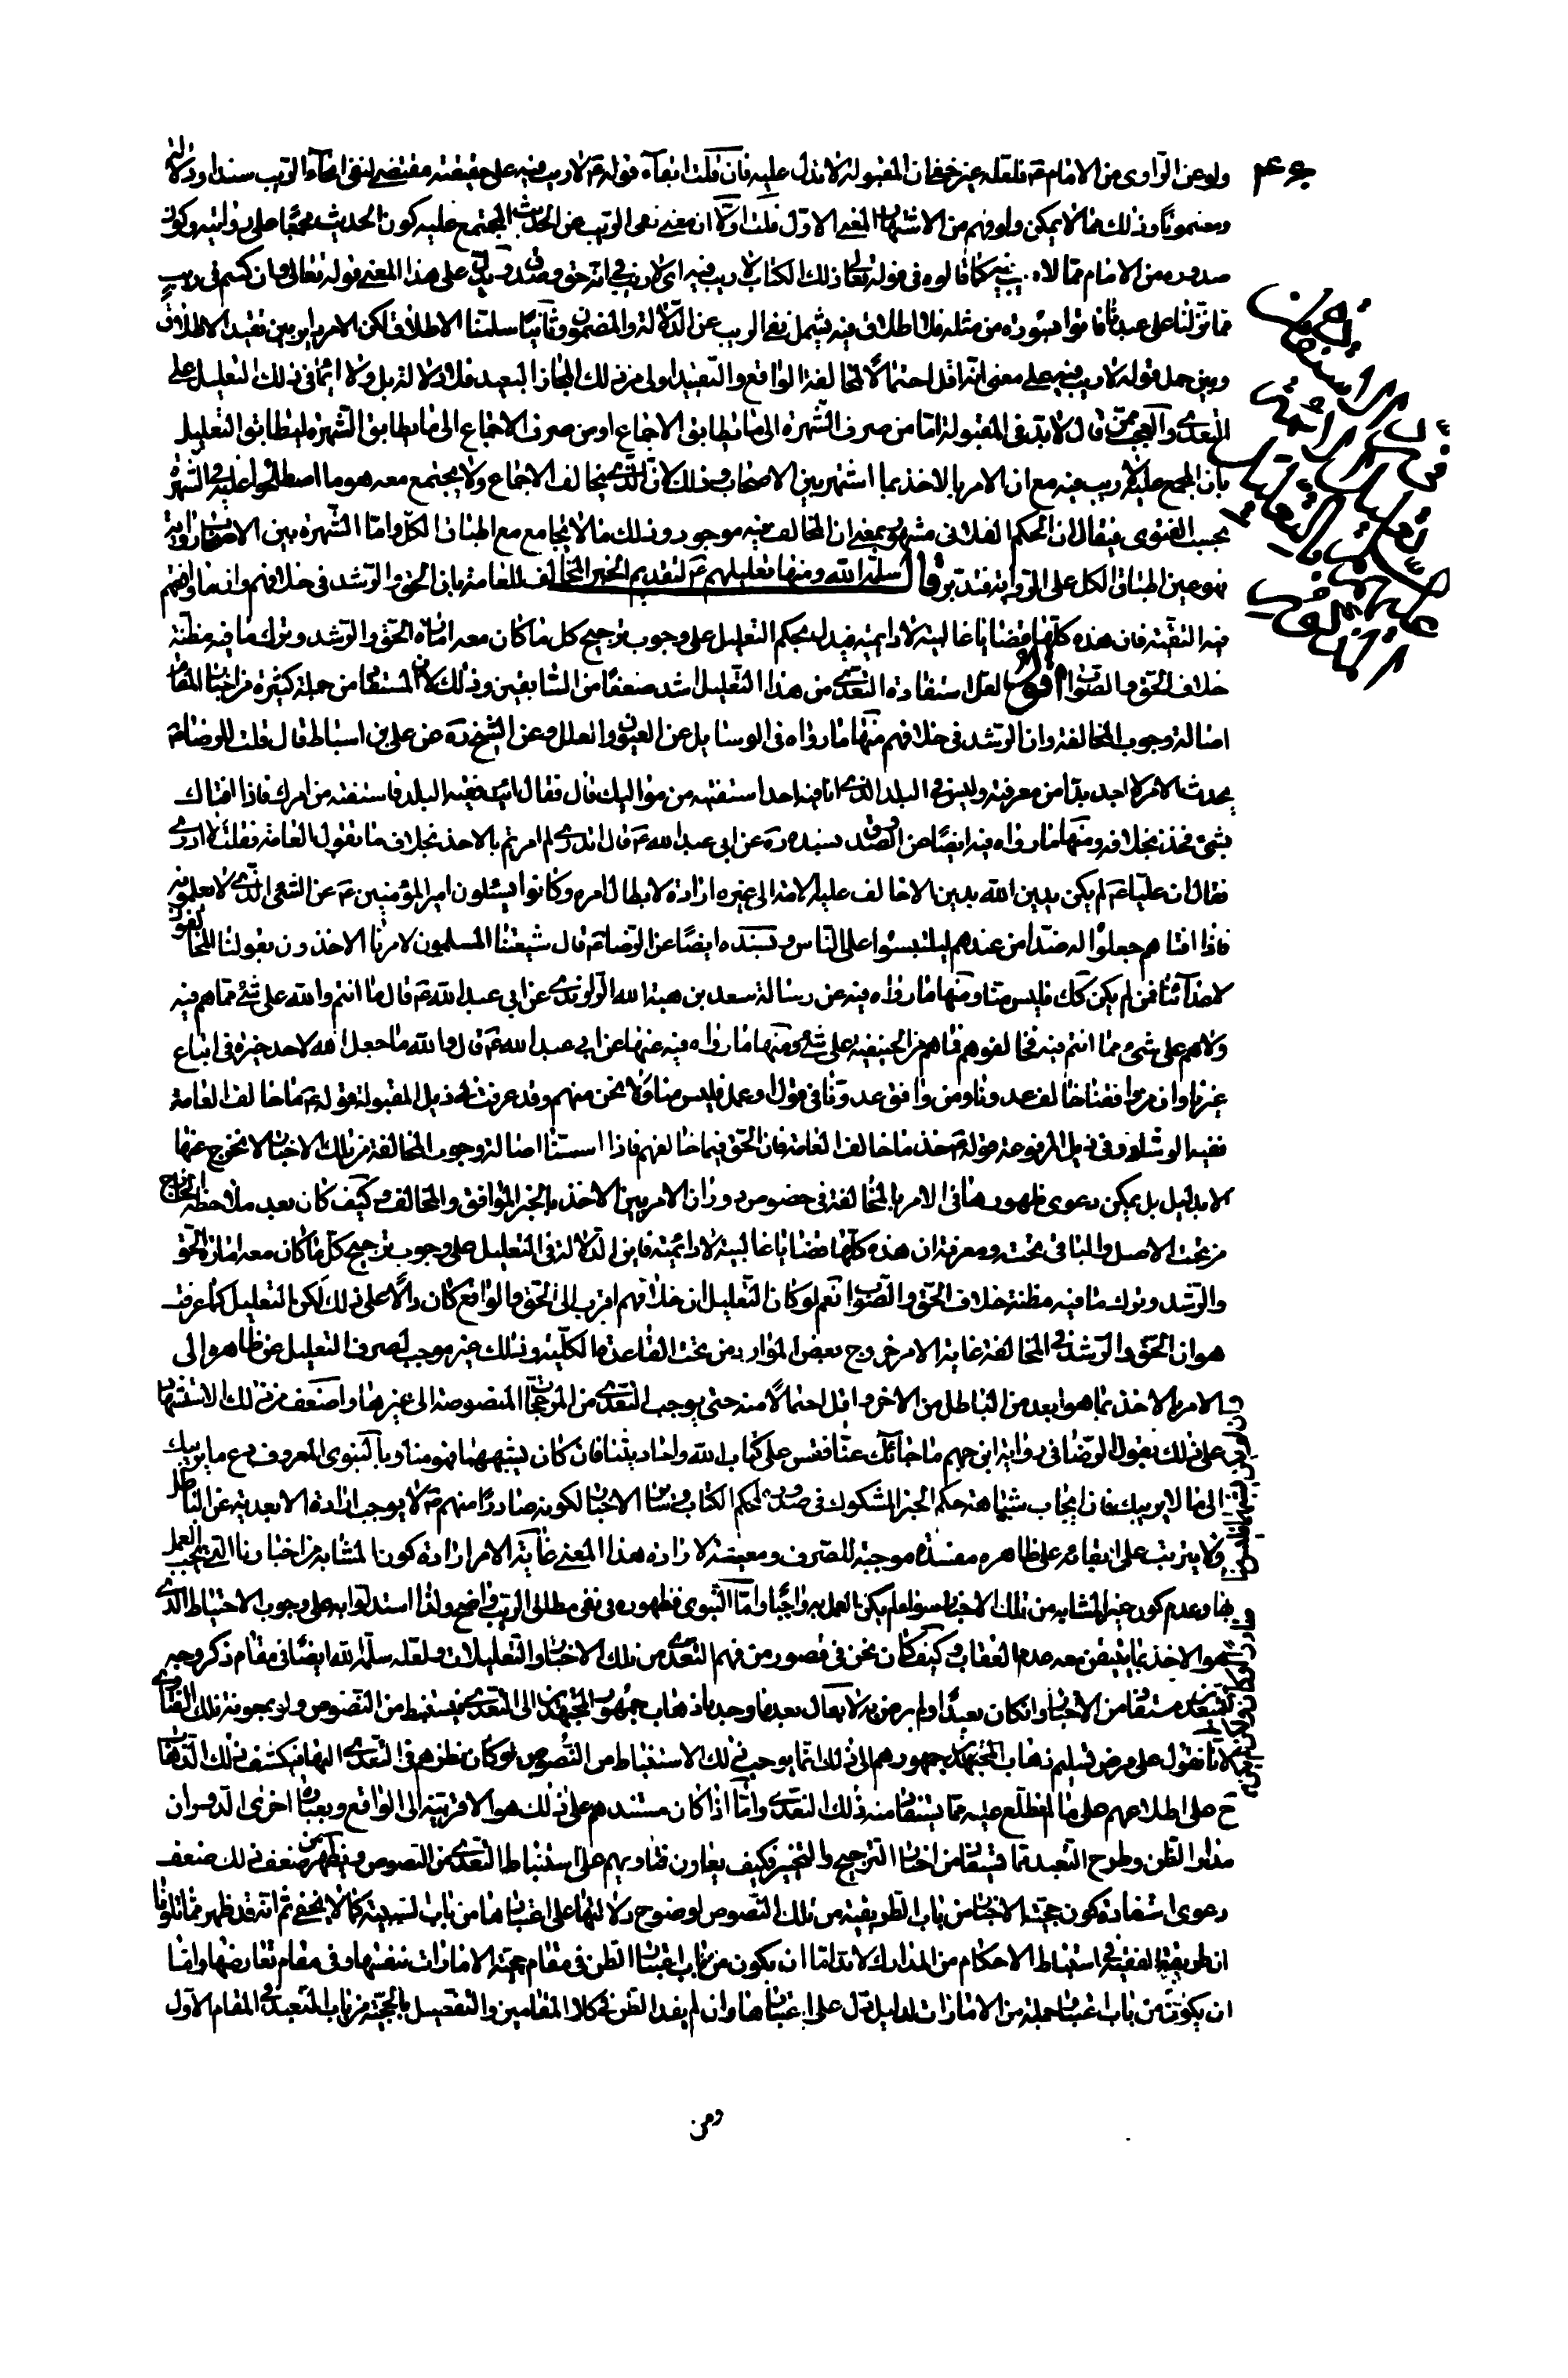 ولو عن الراوى من الامام ع فلعله غير خفى فان المقبولة لا تدل عليه فان قلت ابقاء قوله ع لا ريب فيه على حقيقته مقتضى لنفى انحاء الريب سندا ودلالة
ومضمونا وذلك مما لا يمكن ولو فهم من الاشتهار المعنى الاول قلت اولا ان معنى نفى الريب عن الحديث المجتمع عليه كون الحديث مجمعا على روايته وكون
صدوره من الامام مما لا ريب فيه كما قالوه فى قوله تعالى ذلك الكتاب لا ريب فيه اى لا ريب فى انه حق وصدق ويدل على هذا المعنى قوله تعالى وان كنتم فى ريب
مما نزلنا على عبدنا فاتوا بسورة من مثله فلا اطلاق فيه يشمل نفى الريب عن الدلالة والمضمون وثانيا سلمنا الاطلاق لكن الامر دائر بين تقييد الاطلاق
وبين حمل قوله لا ريب فيه على معنى انه اقل احتمالا لمخالفة الواقع والتقييد اولى من ذلك المجاز البعيد فلا دلالة بل ولا ايماء فى ذلك التعليل على
التعدى والعجب ممن قال لابد فى المقبولة اما من صرف الشهرة الى ما يطابق الاجماع او من صرف الاجماع الى ما يطابق الشهرة ليطابق التعليل
بان المجمع عليه لا ريب فيه مع ان الامر بالاخذ بما اشتهر بين الاصحاب وذلك لان الذى يخالف الاجماع ولا يجتمع معه هو ما اصطلحوا عليه فى الشهرة
بحسب الفتوى فيقال ان الحكم الفلانى مشهور بمعنى ان المخالف فيه موجود وذلك ما لا يجامع مع اطباق الكل واما الشهرة بين الاصحاب رواية
فهو عين اطباق الكل على الرواية فتدبر قال سلمه الله ومنها تعليلهم ع لتقديم الخبر المخالف للعامة بان الحق والرشد فى خلافهم وان ما وافقهم
فيه التقية فان هذه كلها قضايا غالبية لا دائمية فيدل بحكم التعليل على وجوب ترجيح كل ما كان معه امارة الحق والرشد وترك ما فيه مظنة
خلاف الحق والصواب اقول لعل استفادة التعدى من هذا التعليل اشد ضعفا من السابقين وذلك لان المستفاد من جملة كثيرة من اخبار المقام
اصالة وجوب المخالفة وان الرشد فى خلافهم منها ما رواه فى الوسايل عن العيون والعلل وعن الشيخ ره عن على بن اسباط قال قلت للرضا ع
يحدث الامر لا اجد بدا من معرفته وليس فى البلد الذى انا فيه احد استفتيه من مواليك قال فقال ائت فقيه البلد فاستفته من امرك فاذا افتاك
بشىء فخذ بخلافه ومنها ما رواه فيه ايضا عن الصدوق بسنده ره عن ابى عبد الله ع قال اتدرى لم امرتم بالاخذ بخلاف ما يقول العامة فقلت لا ادرى
فقال ان عليا ع لم يكن يدين الله بدين الا خالف عليه الامة الى غيره ارادة لابطال امره وكانوا يسئلون امير المؤمنين ع عن الشىء الذى لا يعلمونه
فاذا افتاهم جعلوا له ضدا من عندهم ليلبسوا على الناس وبسنده ايضا عن الرضا ع قال شيعتنا المسلمون لامرنا الاخذون بقولنا المخالفون
لاعدائنا فمن لم يكن كك فليس منا ومنها ما رواه فيه عن رسالة سعد بن هبة الله الراوندى عن ابى عبد الله ع قال ما انتم والله على شىء مما هم فيه
ولا هم على شىء مما انتم فيه فخالفوهم فما هم من الحنيفية على شىء ومنها ما رواه فيه عنها عن ابى عبد الله ع قال والله ما جعل الله لاحد خيرة فى اتباع
غيرنا وان من وافقنا خالف عدونا ومن وافق عدونا فى قول او عمل فليس منا ولا نحن منهم وقد عرفت فى ذيل المقبولة قوله ع ما خالف العامة
ففيه الرشاد وفى ذيل المرفوعة قوله ع خذ ما خالف العامة فان الحق فيما خالفهم فاذا اسسنا اصالة وجوب المخالفة من تلك الاخبار لا نخرج عنها
الا بدليل بل يمكن دعوى ظهورها فى الامر بالمخالفة فى خصوص دوران الامر بين الاخذ بالخبر الموافق والمخالف وكيف كان بعد ملاحظة الخارج
من تحت الاصل والباقى تحته ومعرفة ان هذه كلها قضايا غالبية لا دائمية فاين الدلالة فى التعليل على وجوب ترجيح كل ما كان معه امارة الحق
والرشد وترك ما فيه مظنة خلاف الحق والصواب نعم لو كان التعليل ان خلافهم اقرب الى الحق والواقع كان دالا على ذلك لكن التعليل كما عرفت
هو ان الحق والرشد فى المخالفة غاية الامر خروج بعض الموارد من تحت القاعدة الكلية وذلك غير موجب لصرف التعليل عن ظاهره الى
الامر بالاخذ بما هو ابعد من الباطل من الاخر واقل احتمالا منه حتى يوجب التعدى من المرجحات المنصوصة الى غيرها واضعف من ذلك الاستشهاد
على ذلك بقول الرضا فى رواية ابن جهم ما جائك عنا فقس على كتاب الله واحاديثنا فان كان يشبههما فهو منا وبالنبوى المعروف دع ما يريبك
الى ما لا يريبك فان ايجاب شباهته حكم الخبر المشكوك فى صدوره لحكم الكتاب وساير الاخبار لكونه صادرا منهم ع لا يوجب ارادة الابعدية عن الباطل
ولا يترتب على ابقائه على ظاهره مفسدة موجبة للصرف ومعينة لارادة هذا المعنى غاية الامر ارادة كون المشابه من اخبارنا التى يجب العمل
بها وعدم كون غير المشابه من تلك الاخبار سواء لم يكن العمل به واجبا واما النبوى فظهوره فى نفى مطلق الريب واضح ولذا استدلوا به على وجوب الاحتياط الذى
هو الاخذ بما يتيقن معه عدم العقاب وكيف كان نحن فى قصور من فهم التعدى من تلك الاخبار والتعليلات ولعله سلمه الله ايضا فى مقام ذكر وجه
مستفاد من الاخبار وان كان بعيدا ولم يرض به لا يقال بعد ما وجد باذهاب جمهور المجتهدين الى التعدى فيستنبط من النصوص ولو بمعونة تلك الفتاوى
لانا نقول على فرض تسليم ذهاب المجتهدين جمهورهم الى ذلك انما يوجب ذلك الاستنباط من النصوص لو كان نظرهم فى التعدى اليها فيكشف ذلك الذهاب
ح على اطلاعهم على ما لم نطلع عليه مما يستفاد منه ذلك التعدى واما اذا كان مستندهم على ذلك هو الاقربية الى الواقع وبعبارة اخرى الدوران
مدار الظن وطرح التعبد بما يستفاد من اخبار الترجيح والتخيير فكيف يعاون فتاويهم على استنباط التعدى من النصوص ويظهر من ضعف ذلك ضعف
دعوى استفادة كون حجية الاخبار من باب الطريقية من تلك النصوص لوضوح دلالتها على اعتبارها من باب السببية كما لا يخفى ثم انه قد ظهر مما تلونا
ان طريقة الفقيه فى استنباط الاحكام من المدارك لابد اما ان يكون من باب اعتبار الظن فى مقام حجية الامارات بنفسها وفى مقام تعارضها واما
ان يكون من باب اعتبار جملة من الامارات لدليل دل على اعتبارها وان لم يفد الظن فى كلا المقامين والتفصيل بالحجية من باب التعبد فى المقام الاول
ومن